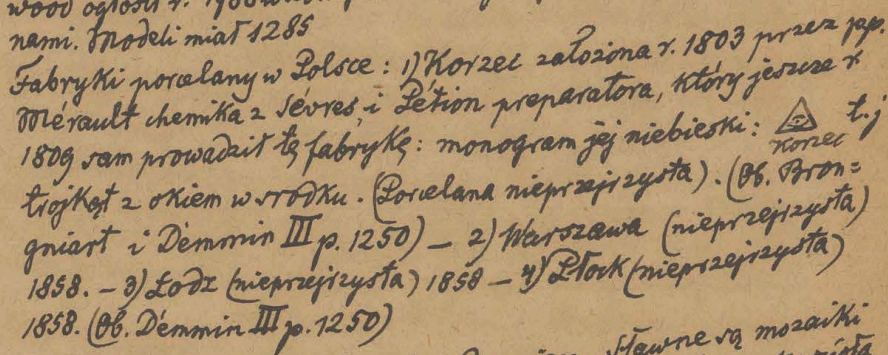 wood ogłosił r.
nami. Modeli miał 1285
Fabryki porcelany w Polsce : 1) Korzec założona r. 1803 przez pp.
Mérault chemika z Sévres i Pétion preparatora, który jeszcze r
1809 sam prowadził tę fabrykę : monogram jej niebieski : Korzec t. j
trójkąt z okiem w srodku. (Porcelana nieprzejrzysta). (Ob. Bron=
gniart i Démmin III p. 1250) — 2) Warszawa (nieprzejrzysta)
1858. — 3) Łodz (nieprzejrzysta) 1858 — 4) Płock (nieprzejrzysta)
1858. (Ob. Démmin III p. 1250)
sławne są mozaiki